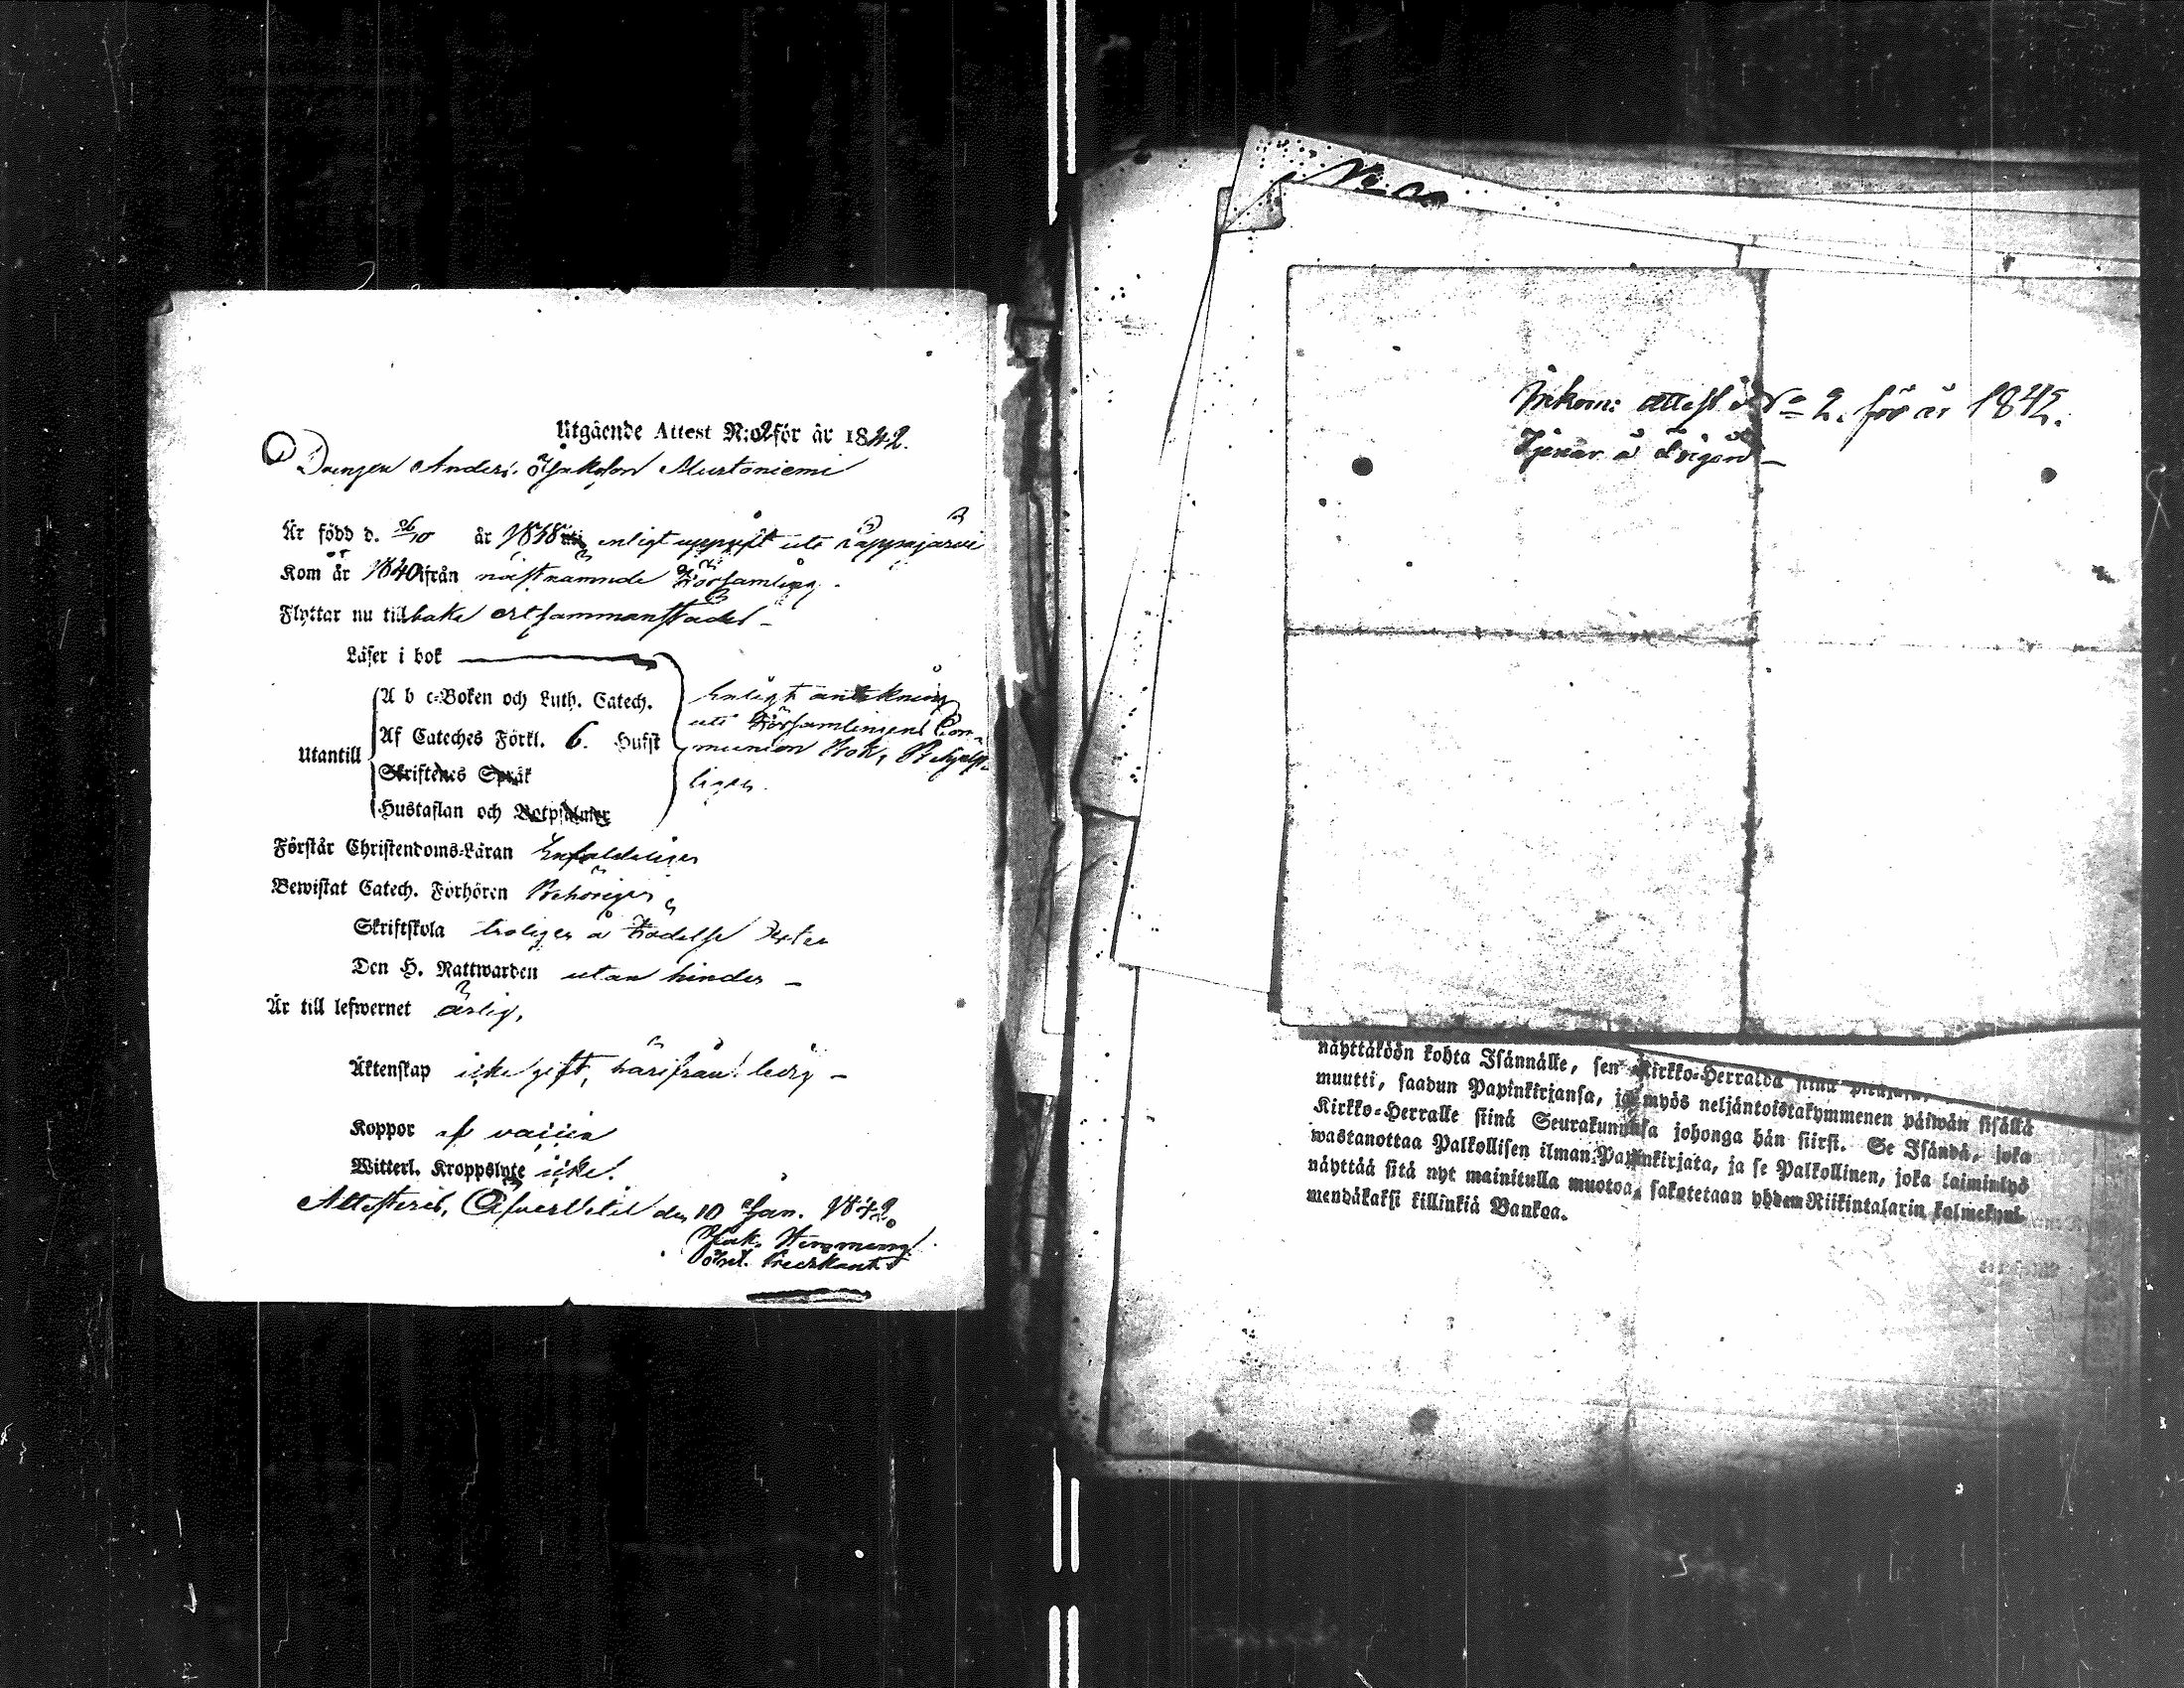 Utgående Attest N:o 2 för år 1842.
Drengen Anders Jakobson Murtoniemi
Är född d. 26/10 år 1818 enligt uppgift uti Lappajärvi
Kom år 1840 ifrån nästnämnde Församling.
Flyttar nu tillbaka ertsammanstädes –
Läser i bok
A b c-Boken och Luth. Catech.
Af Cateches Förkl. 6. Hufst
Utantill
Skriftenes Språk
Hustaflan och Botpsalmer
Enligt anteknin̄g
uti Församlin̄gens Com-
munion Bok, Behjelp-
ligen.
Förstår Christendoms-Läran Enfaldeligen
Bewistat Catech. Förhören Behörigen
Skriftskola troligen å Födelse Orten
Den H. Nattwarden utan hinder –
Är till lefwernet ärlig,
Äktenskap icke gift, härifrån ledig –
Koppor af vaccin
Witterl. Kroppslyte icke.
Attesteras, Öfvervetil den 10 Jan. 1842.
Jak. Hemming
No
Inkom: attest N:o 2. för år 1842.
Tjenar å
näyttäköön kohta Isännälle, sen Kirkko-Herralda siinä
muutti, saadun Papinkirjansa, ja myös neljäntoistakymmenen päiwän sisällä
Kirkko-Herralle siinä Seurakunnasa johonga hän siirsi. Se Isändä, joka
wastanottaa Palkollisen ilman Papinkirjata, ja se Palkollinen, joka laiminlyö
näyttää sitä nyt mainitulla muotoa, sakotetaan yhden Riikintalarin kolmekym-
mendäkaksi killinkiä Bankoa.